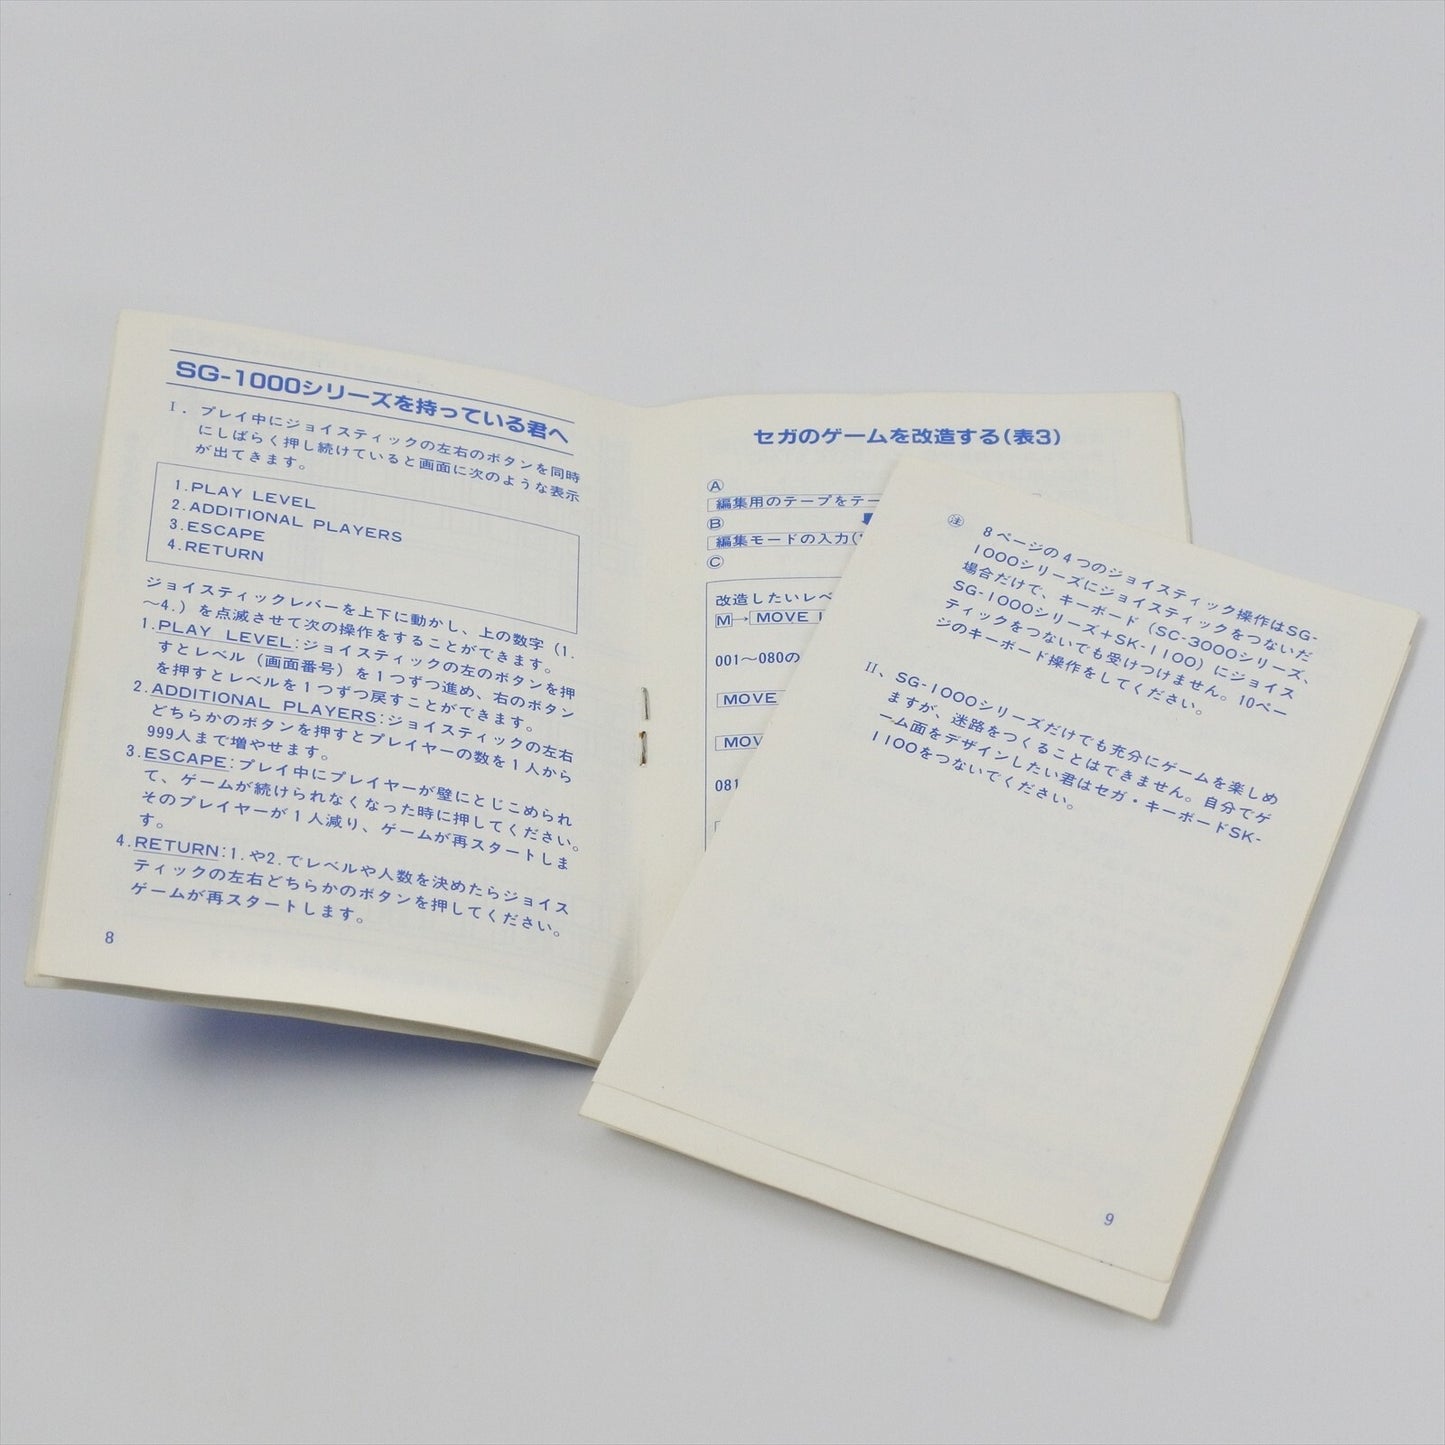 SG-1000シリーズを持っている君へ
I. プレイ中にジョイスティックの左右のボタンを同時
にしばらく押し続けていると画面に次のような表示
が出てきます。
1.PLAY LEVEL
2.ADDITIONAL PLAYERS
3.ESCAPE
4.RETURN
ジョイスティックレバーを上下に動かし、上の数字(1.
～4.)を点滅させて次の操作をすることができます。
1.PLAY LEVEL:ジョイスティックの左のボタンを押
すとレベル(画面番号)を1つずつ進め、右のボタン
を押すとレベルを1つずつ戻すことができます。
2.ADDITIONAL PLAYERS:ジョイスティックの左右
どちらかのボタンを押すとプレイヤーの数を1人から
999人まで増やせます。
3.ESCAPE:プレイ中にプレイヤーが壁にとじこめられ
て、ゲームが続けられなくなった時に押してください。
そのプレイヤーが1人減り、ゲームが再スタートしま
す。
4.RETURN:1.や2.でレベルや人数を決めたらジョイス
ティックの左右どちらかのボタンを押してください。
ゲームが再スタートします。
8
セガのゲームを改造する(表3)
Ⓐ
編集用のテープをテー
Ⓑ
編集モードの入力(
Ⓒ
改造したいレベ
M→MOVE
001～080の
MOVE
MOV
081
㊟ 8ページの4つのジョイスティック操作はSG-
1000シリーズにジョイスティックをつないだ
場合だけで、キーボード(SC-3000シリーズ、
SG-1000シリーズ+SK-1100)にジョイス
ティックをつないでも受けつけません。10ペー
ジのキーボード操作をしてください。
II、SG-1000シリーズだけでも充分にゲームを楽しめ
ますが、迷路をつくることはできません。自分でゲ
ーム面をデザインしたい君はセガ・キーボードSK-
1100をつないでください。
9